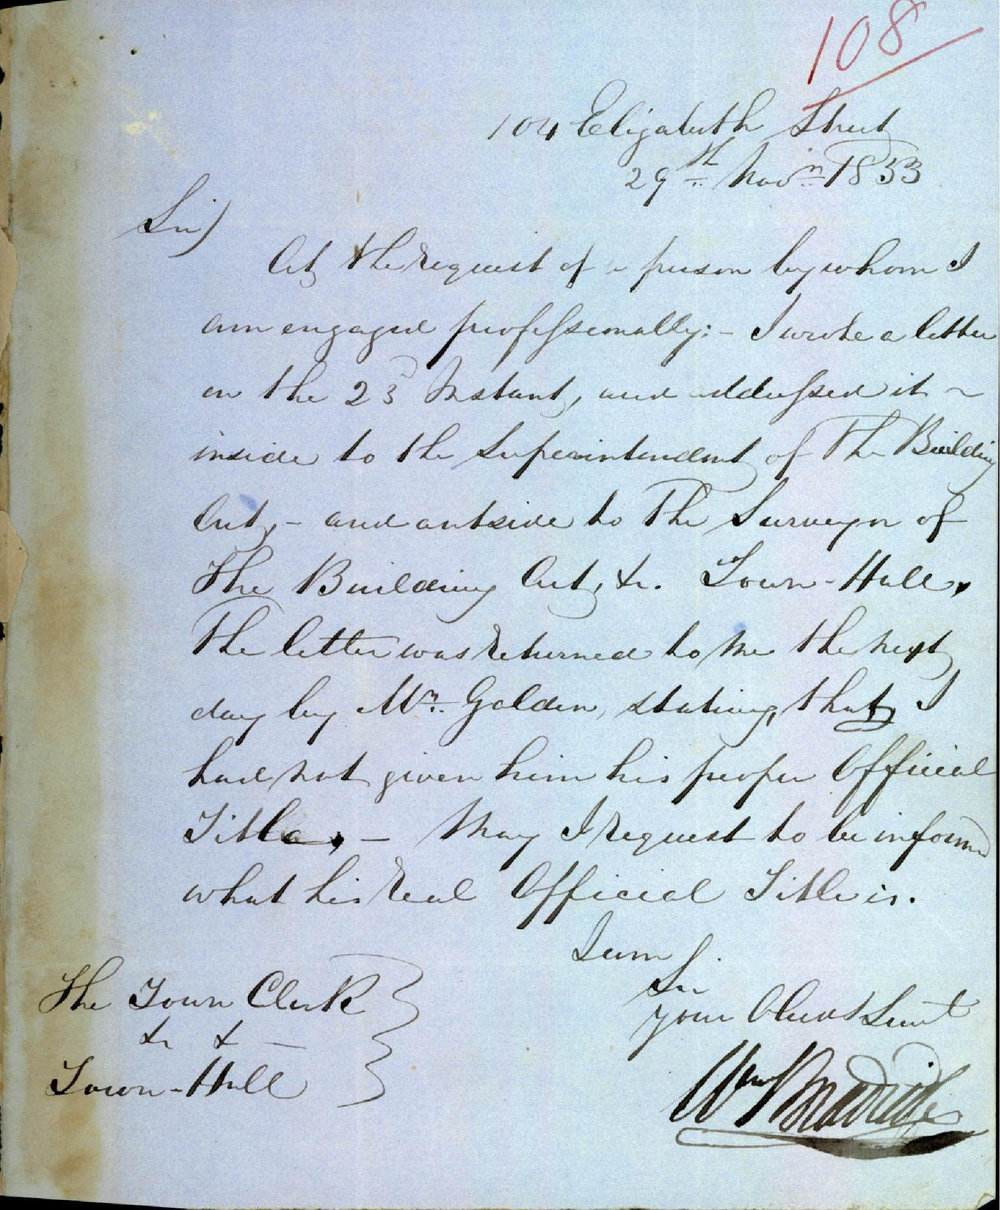 108
104 Elizabeth Street
29th Novr 1853
Sir)
At the request of a person by whom I
am engaged professionally:- I wrote a letter
on the 23d Instant, and addressed it
inside to the Superintendent of The Building
Act, - and outside to The Surveyor of
The Building Act, &c. Town-Hall,
The letter was returned to me the next
day by Mr. Golden, stating, that I
had not given him his proper Official
Title, - May I request to be informed
what his real Official Title is.
I am
Sir
your Obedt Servt
Wm
The Town Clerk
&c &
Town-Hall